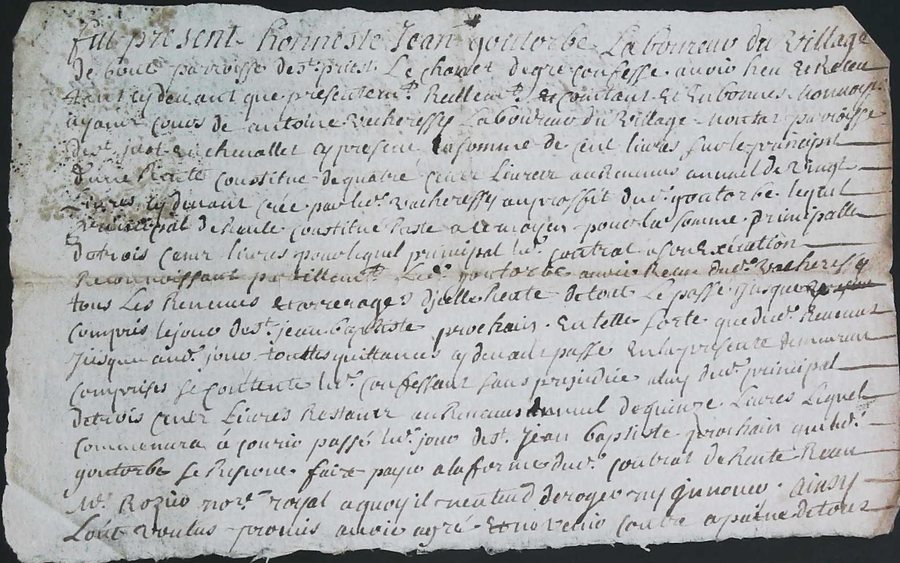 fut present honneste Jean goutorbe Laboureur du village
de bout parroisse de st priest Le de gré confesse avoir heu et Receu
tant cy devant que presentemt Reellemt et contant et en bonnes monnoyes
ayant cours de antoine vacheresse Laboureur du village parroisse
de st just en chevallet a present La somme de cent livres sur le principal
d'une Rente constitue de quatre cent Livres au Revenus annuel de vingt
Livres cy devant crée par led. vacheresse au proffit dud. goutorbe lequel
principal de Rente constitué Reste a le moyen pour la somme principalle
de trois cent livres pour lequel principal led. contrat a son Exécution
Reconnoissant pareillemt Led. goutorbe avoir Receu dud. vacheresse
tous Les Revenus et arrerages d'jcelle Rente de tout Le passé jusque
compris le jour de st jean Baptiste prochain. En telle sorte que dud. Revenus
jusque aud. jour touttes quittances cy devant passé En la presente demeurant
comprises se contente led. confessant sans prejudice a luy dud. principal
de trois cent Livres Restant au Revenus annuel de quinze Livres Lequel
commencera a courir passé led. jour de st Jean baptiste prochain que led.
goutorbe se Reserve faire payer a la forme dud. contrat de Rente Receu
Me Rozier nore royal a quoy il n'entend deroger ny jnnover. ainsy
L'ont voulus promis avoir agré et no venir contre a paine de tous